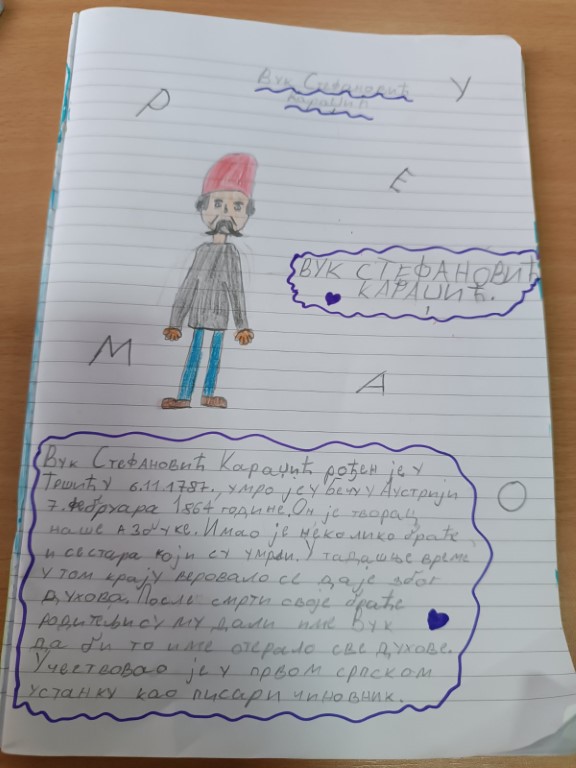 Вук Стефановић
Караџић
Р
У
Е
ВУК СТЕФАНОВИЋ
КАРАЏИЋ.
М
А
О
Вук Стефановић Караџић рођен је у
Тршићу 6.11.1787., умро је у бечу у Аустрији
7. фебруара 1864 године. Он је творац
наше азбуке. Имао је неколико браће
и сестара који су умрли. У тадашње време
у том крају веровало се да је због
духова. После смрти своје браће
родитељи су му дали име Вук
да би то име отерало све духове.
Учествовао је у првом српском
устанку као писар и чиновник.